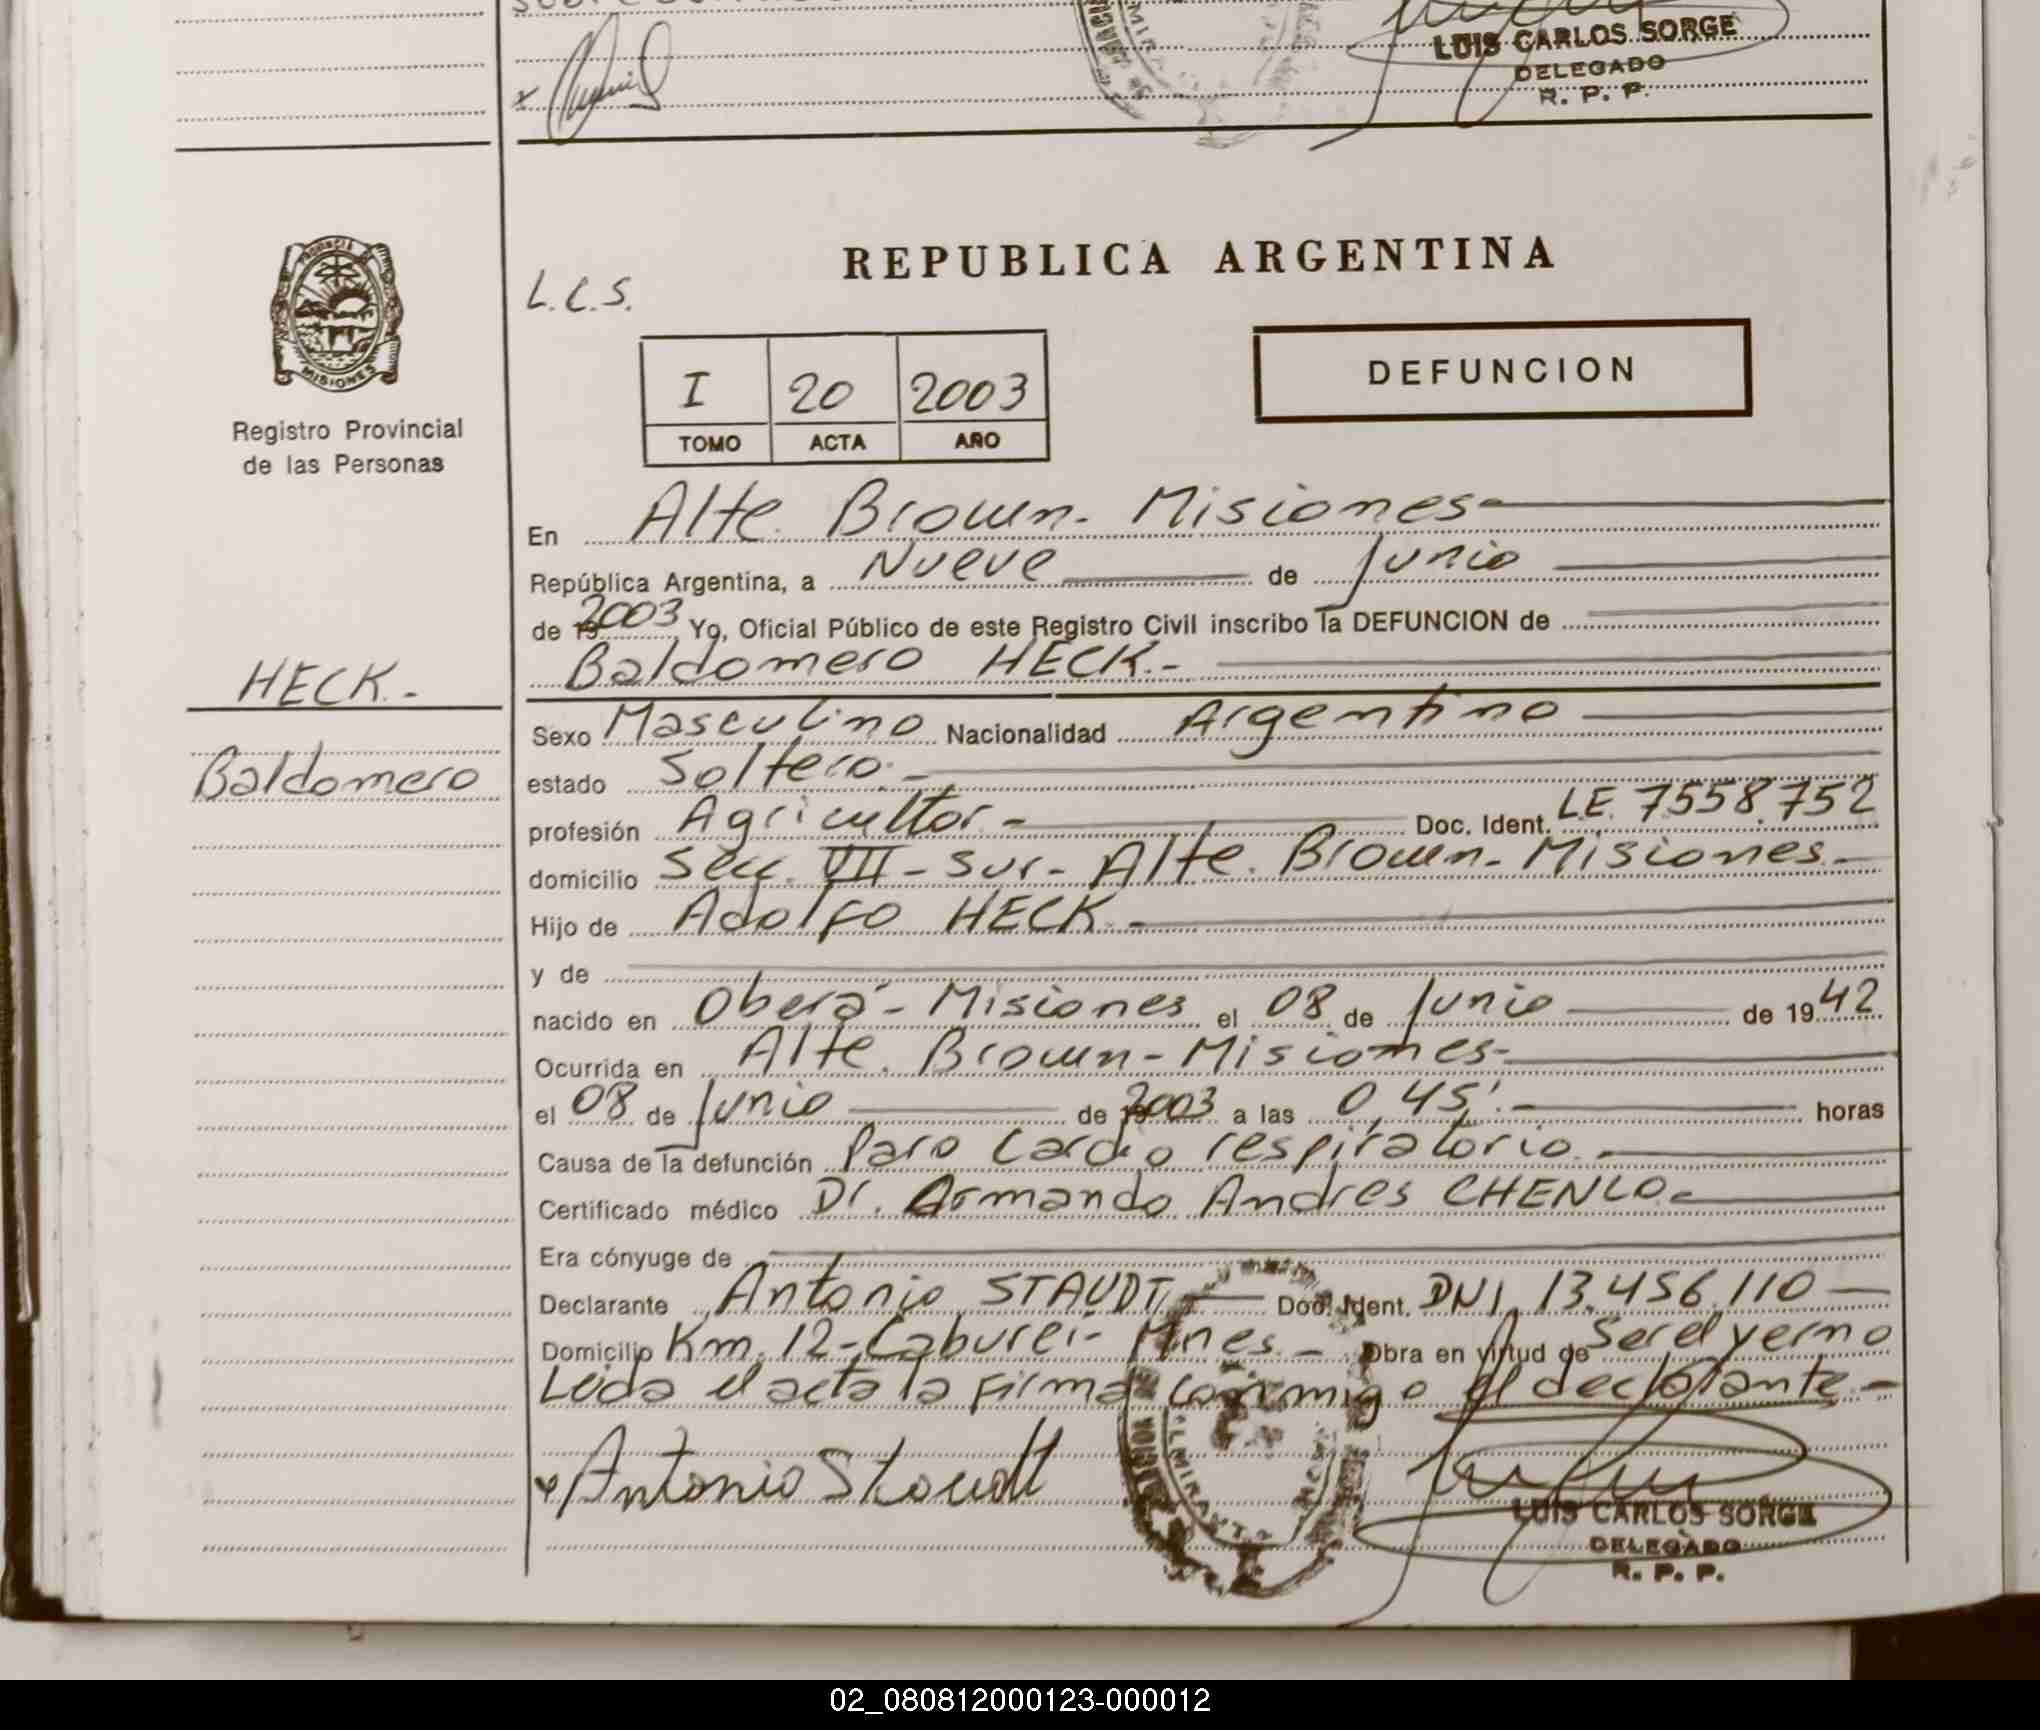 LUIS CARLOS SORGE
DELEGADO
R. P. P.
PROVINCIA
MISIONES
Registro Provincial
de las Personas
L.C.S.
REPUBLICA ARGENTINA
I 20 2003
TOMO ACTA AÑO
DEFUNCION
En Alte. Brown - Misiones -
República Argentina, a Nueve de Junio
de 19 2003 Yo, Oficial Público de este Registro Civil inscribo la DEFUNCION de
Baldomero HECK.-
HECK.-
Baldomero
Sexo Masculino Nacionalidad Argentino
estado Soltero.-
profesión Agricultor.- Doc. Ident. L.E. 7558.752
domicilio Secc. VII - Sur - Alte. Brown - Misiones.-
Hijo de Adolfo HECK.-
y de
nacido en Oberá - Misiones el 08 de Junio de 1942
Ocurrida en Alte. Brown - Misiones -
el 08 de Junio de 19 2003 a las 0,45'.- horas
Causa de la defunción Paro Cardio respiratorio.-
Certificado médico Dr. Armando Andres CHENLO.-
Era cónyuge de
Declarante Antonio STAUDT Doc. Ident. DNI. 13.456.110 -
Domicilio Km. 12 - Caburei - Mnes. - Obra en virtud de Ser el yerno
Leida el acta la firma conmigo el declarante.-
Antonio Staudt
ALMIRANTE
LUIS CARLOS SORGE
DELEGADO
R. P. P.
02_080812000123-000012